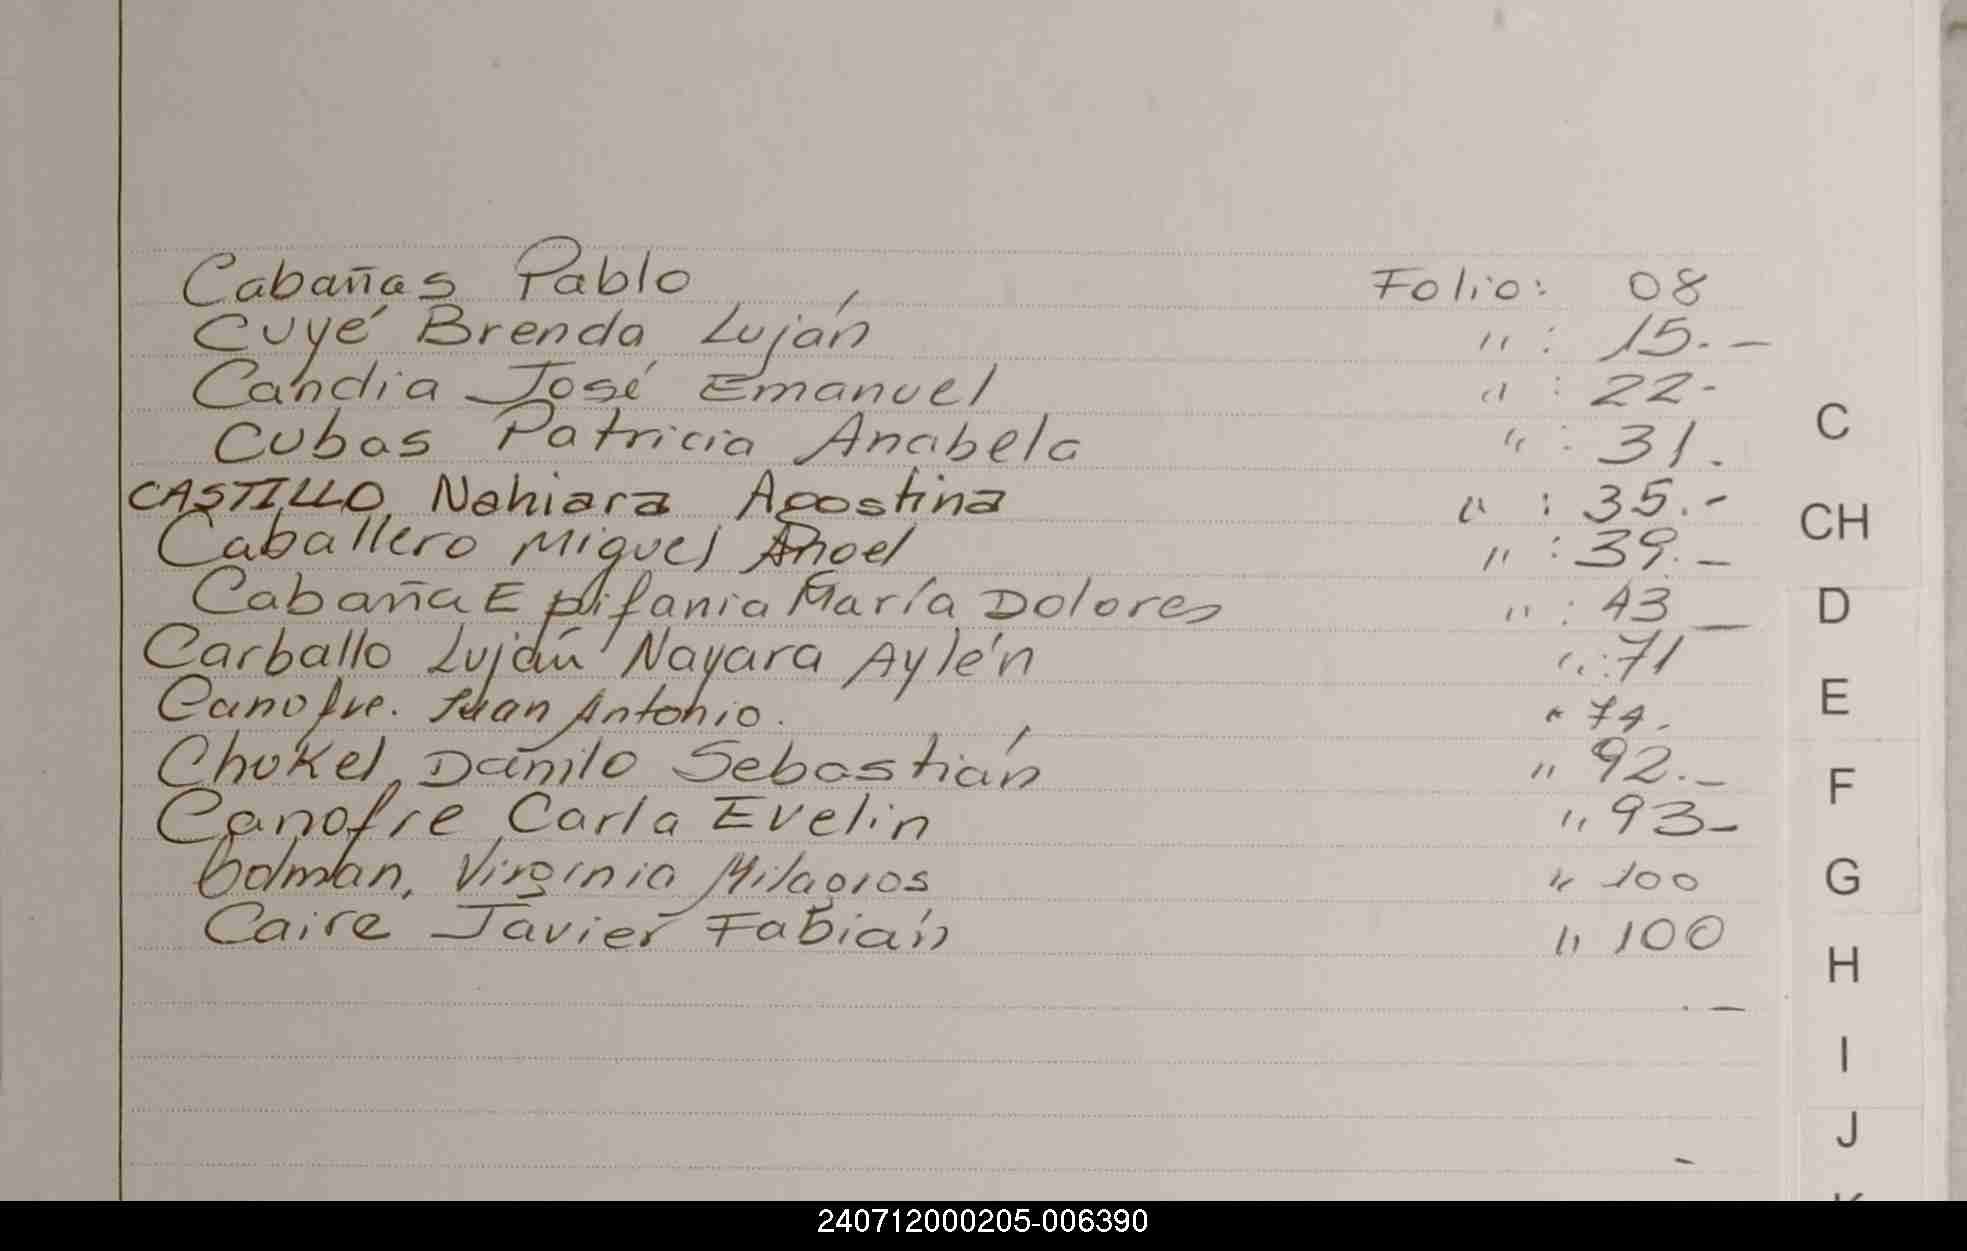 Cabañas Pablo Folio: 08
Cuyé Brenda Luján " : 15.—
Candia José Emanuel " : 22-
Cubas Patricia Anabela " : 31.
CASTILLO, Nahiara Agostina " : 35.-
Caballero Miguel " : 39.—
Cabaña Epifania María Dolores " : 43 —
Carballo Luján Nayara Aylén " : 71
Canofre. Juan Antonio. " 74.
Chokel, Danilo Sebastián " 92.—
Canofre Carla Evelin " 93—
Virginia Milagros " 100
Caire Javier Fabián " 100
C
CH
D
E
F
G
H
I
J
240712000205-006390